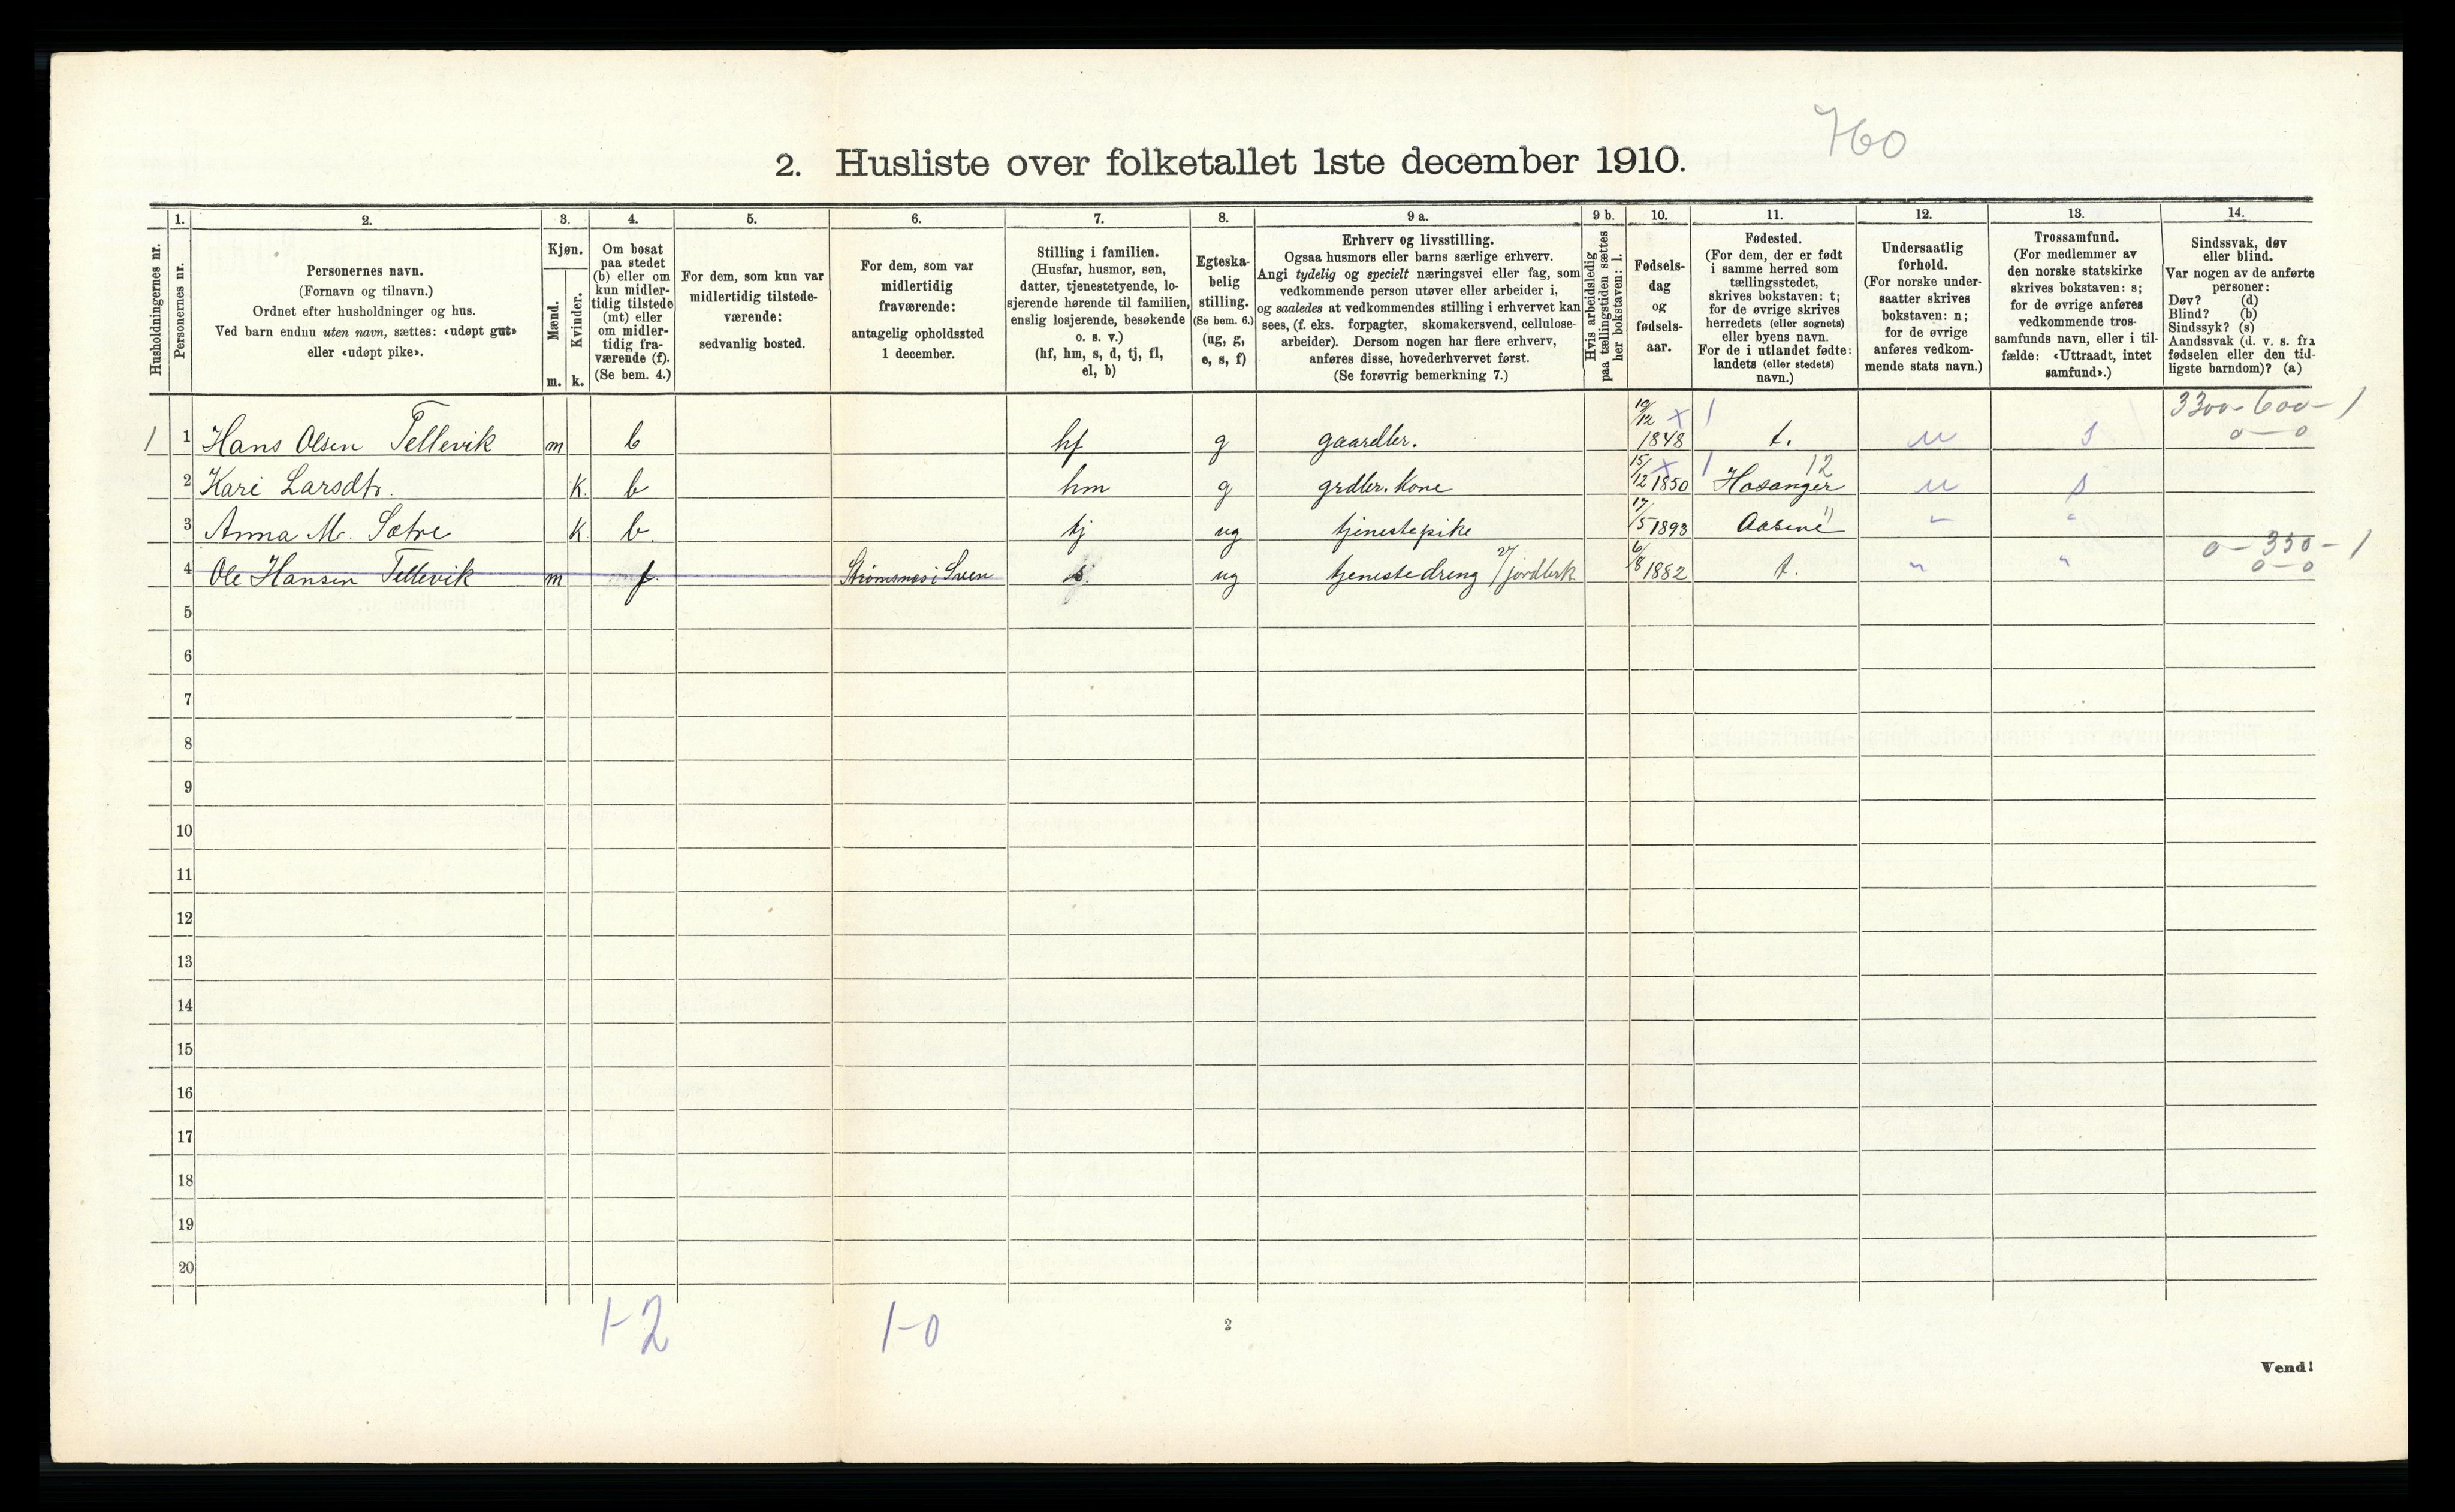 760
2. Husliste over folketallet 1ste december 1910.
Husholdningernes nr.
1. Personernes nr.
2. Personernes navn.
(Fornavn og tilnavn.)
Ordnet efter husholdninger og hus.
Ved barn endnu uten navn, sættes: «udøpt gut»
eller «udøpt pike».
3. Kjøn.
Mænd. m.
Kvinder. k.
4. Om bosat
paa stedet
(b) eller om
kun midler-
tidig tilstede
(mt) eller
om midler-
tidig fra-
værende (f).
(Se bem. 4.)
5. For dem, som kun var
midlertidig tilstede-
værende:
sedvanlig bosted.
6. For dem, som var
midlertidig
fraværende:
antagelig opholdssted
1 december.
7. Stilling i familien.
(Husfar, husmor, søn,
datter, tjenestetyende, lo-
sjerende hørende til familien,
enslig losjerende, besøkende
o. s. v.)
(hf, hm, s, d, tj, fl,
el, b)
8. Egteska-
belig
stilling.
(Se bem. 6.)
(ug, g,
e, s, f)
9 a. Erhverv og livsstilling.
Ogsaa husmors eller barns særlige erhverv.
Angi tydelig og specielt næringsvei eller fag, som
vedkommende person utøver eller arbeider i,
og saaledes at vedkommendes stilling i erhvervet kan
sees, (f. eks. forpagter, skomakersvend, cellulose-
arbeider). Dersom nogen har flere erhverv,
anføres disse, hovederhvervet først.
(Se forøvrig bemerkning 7.)
9 b. Hvis arbeidsledig
paa tællingstiden sættes
her bokstaven: l.
10. Fødsels-
dag
og
fødsels-
aar.
11. Fødested.
(For dem, der er født
i samme herred som
tællingsstedet,
skrives bokstaven: t;
for de øvrige skrives
herredets (eller sognets)
eller byens navn.
For de i utlandet fødte:
landets (eller stedets)
navn.)
12. Undersaatlig
forhold.
(For norske under-
saatter skrives
bokstaven: n;
for de øvrige
anføres vedkom-
mende stats navn.)
13. Trossamfund.
(For medlemmer av
den norske statskirke
skrives bokstaven: s;
for de øvrige anføres
vedkommende tros-
samfunds navn, eller i til-
fælde: «Uttraadt, intet
samfund».)
14. Sindssvak, døv
eller blind.
Var nogen av de anførte
personer:
Døv? (d)
Blind? (b)
Sindssyk? (s)
Aandssvak (d. v. s. fra
fødselen eller den tid-
ligste barndom)? (a)
3300-600-1
1 1 Hans Olsen Tellevik m b hf g gaardbr. 19/12 x 1848 1 t. n s 0-0
2 Kari Larsdtr. k. b hm g grdbr. kone 15/12 x 1850 1 Hosanger 12 n s
3 Anna M. Sætre k. b. tj ug tjenestepike 17/5 1893 " "
0-350-1
4 Ole Hansen Tellevik m f. s. ug tjenestedreng v/ jordbrk. 6/8 1882 t. " " 0-0
5
6
7
8
9
10
11
12
13
14
15
16
17
18
19
20
1-2 1-0
2
Vend!